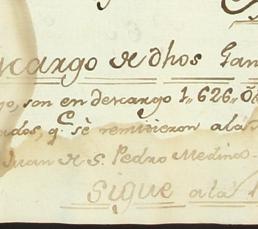 cargo de dhos Gan
go, son en descargo 1„626„
ados, q.e se remitieron a la
Juan de S. Pedro Medina
Sigue a la